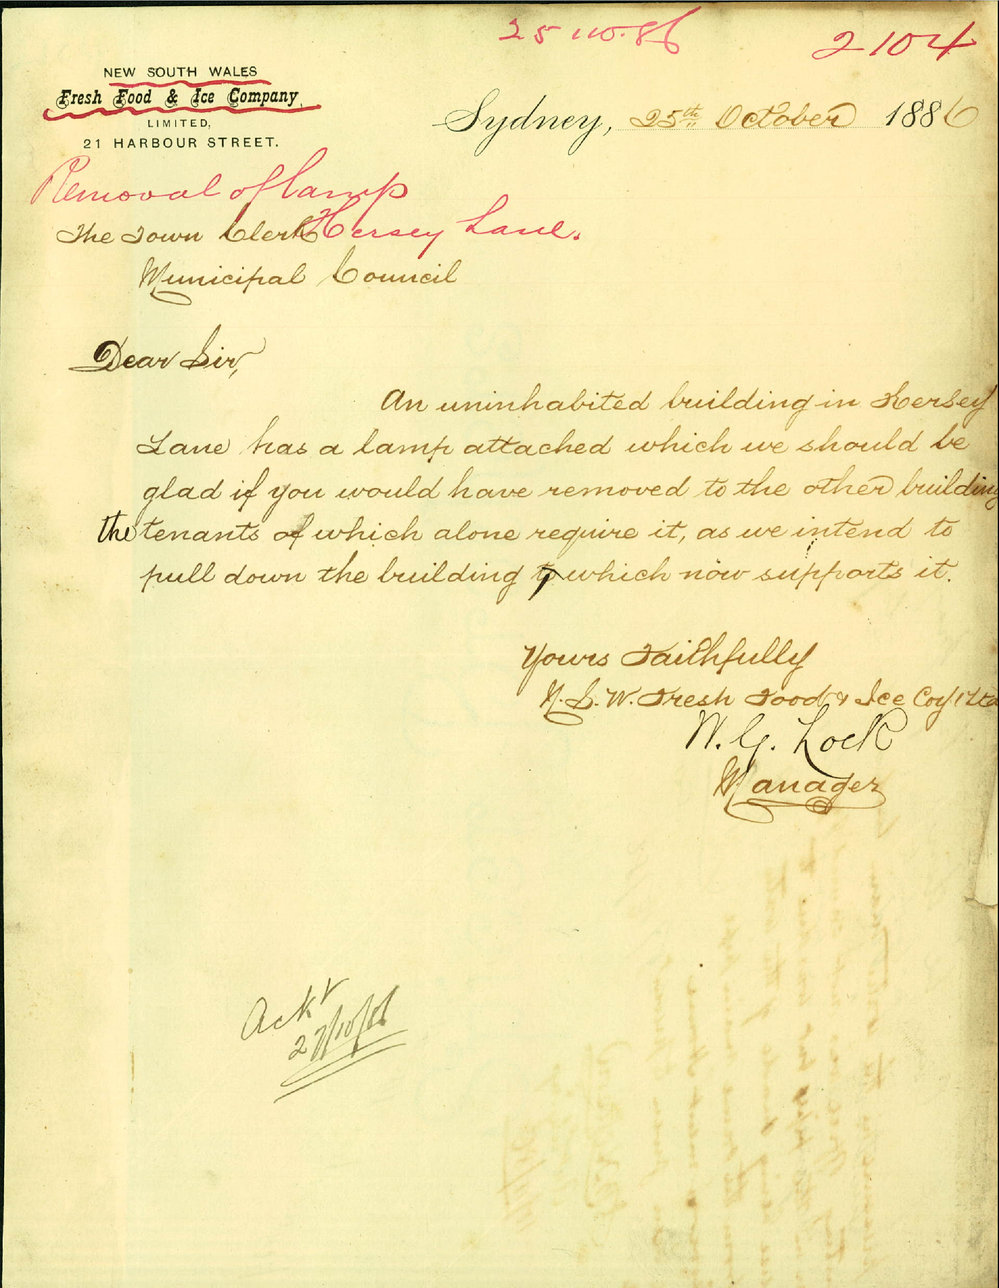 25 10.86
2104
NEW SOUTH WALES
Fresh Food & Ice Company
LIMITED,
21 HARBOUR STREET.
Sydney, 25th October 1886
Removal of lamp
Hersey Lane.
The Town Clerk
Municipal Council
Dear Sir,
An uninhabited building in Kersey
Lane has a lamp attached which we should be
glad if you would have removed to the other building
the tenants of which alone require it, as we intend to
pull down the building which now supports it.
Yours Faithfully
N.S.W. Fresh Food & Ice Coy Ltd
W. G. Lock
Manager
Ackd
27/10/86